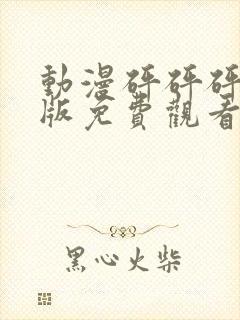 動漫砰砰砰
版免費觀看
黑心火柴